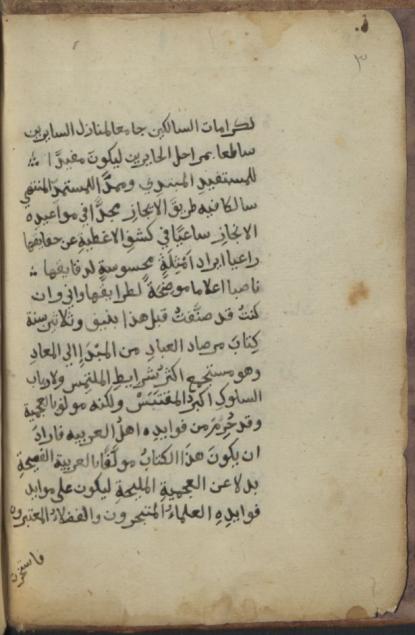 ٣
لكرامات السالكين جامعا لمنازل السايرين
ساطعا بمراحل الحايرين ليكون مفيدًا
للمستفيد المبتدي وممدًّا للمستمد المنتهي
سالكا فيه طريقَ الايجاز مجدًّا في مواعيده
الانجاز ساعيًا في كشف الاغطية عن حقايقها
راعيا ايراد امثلةٍ محسوسةٍ لدقايقها
ناصبا اعلاما موضحةً لطرايقها واني وان
كنتُ قد صنَّفتُ قبل هذا بنيف وثلاثين سنة
كتابَ مرصاد العبادِ من المبْدَإ الي المعاد
وهو مستجمع اكثر شرايطِ الملتمِس ولارباب
السلوكِ اكبر المقتَبَسْ ولكنه مولف بالعجمية
وقد حُرِمَ من فوايدِه اهلُ العربيه فاراد
ان يكونَ هذا الكتابُ مولَّفًا بالعربية الفصيحةِ
بدلا عن العجميةِ المليحةِ ليكون علي موايد
فوايدِهِ العلماءُ المتبحرون والفضلاءُ المعتبرون
فاستخرت